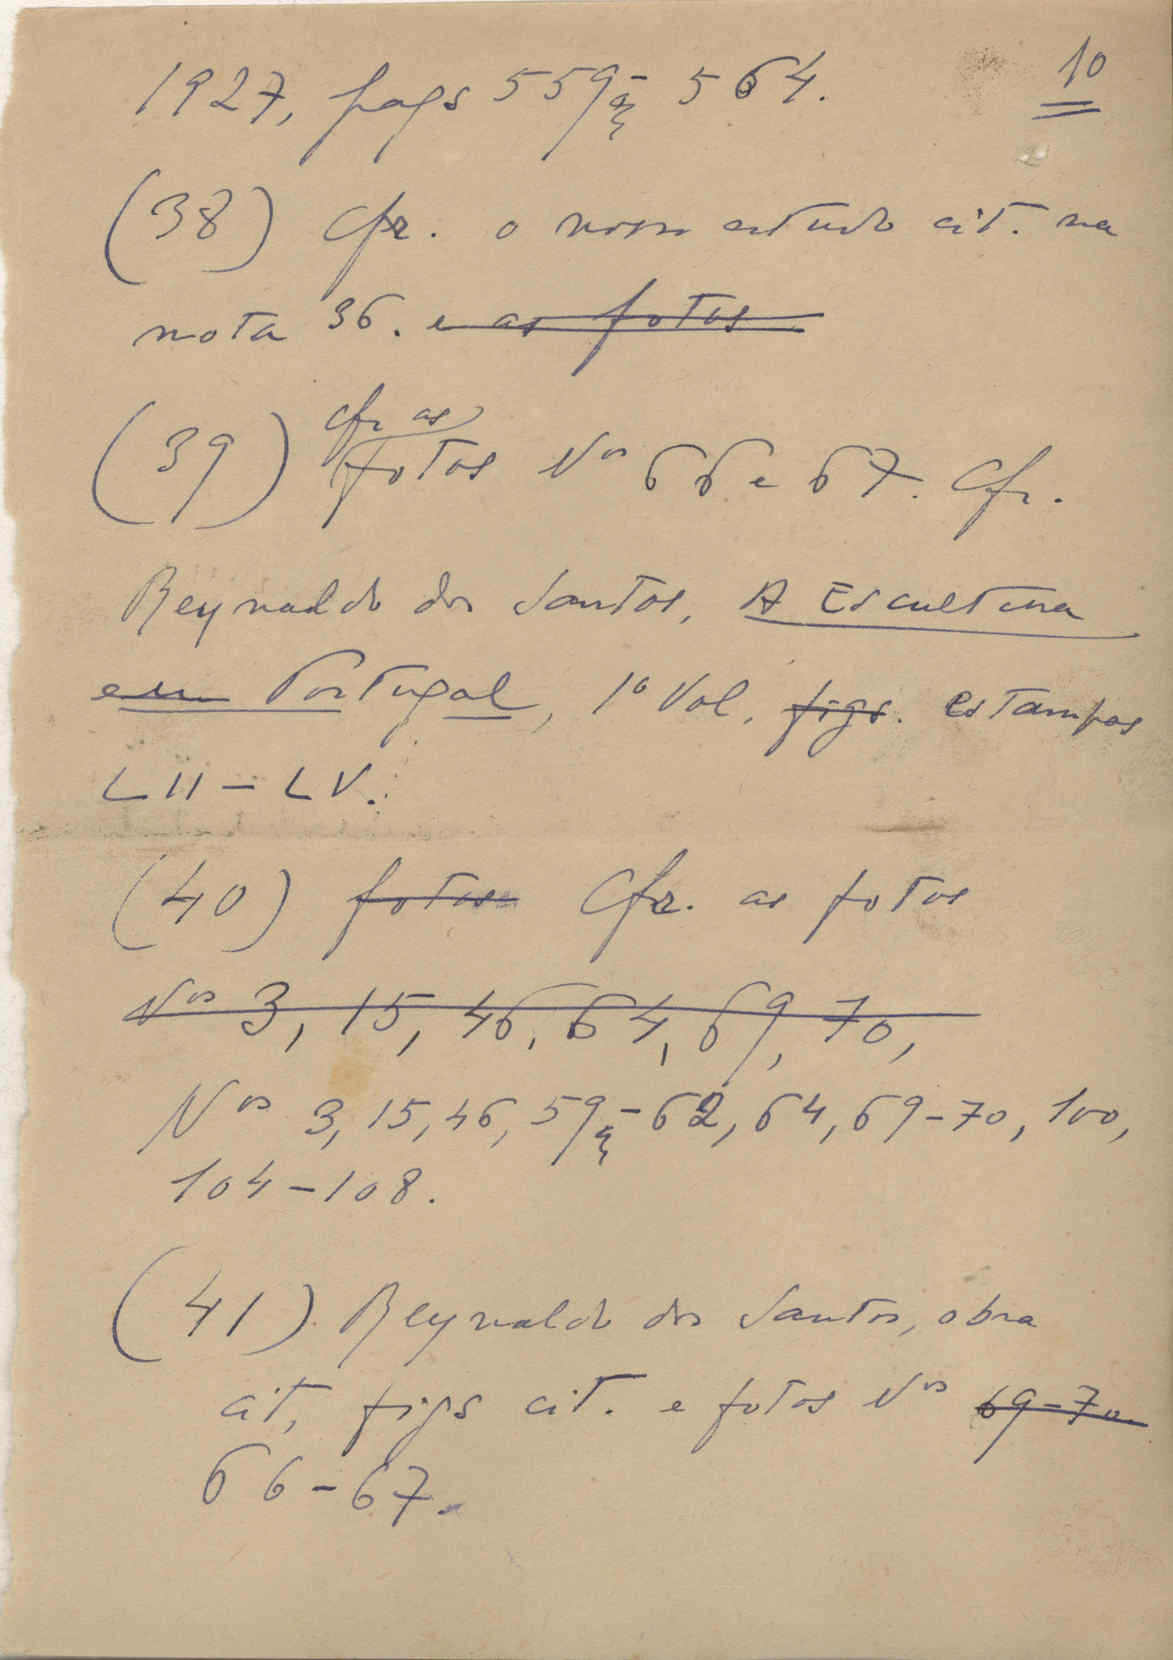 10
1927, pags 559-564.
(38) Cfr. o nosso estudo cit. na
nota 36. e as fotos
cfr as
(39) fotos Nos 66 e 67. Cfr.
Reynaldo dos Santos, A Escultura
em Portugal, 1º Vol. figs. estampas
LII-LV.
(40) fotos Cfr. as fotos
Nos 3, 15, 46, 64, 69, 70,
Nos 3, 15, 46, 59-62, 64, 69-70, 100,
104-108.
(41) Reynaldo dos Santos, obra
cit, figs cit. e fotos Nos 69-70
66-67.